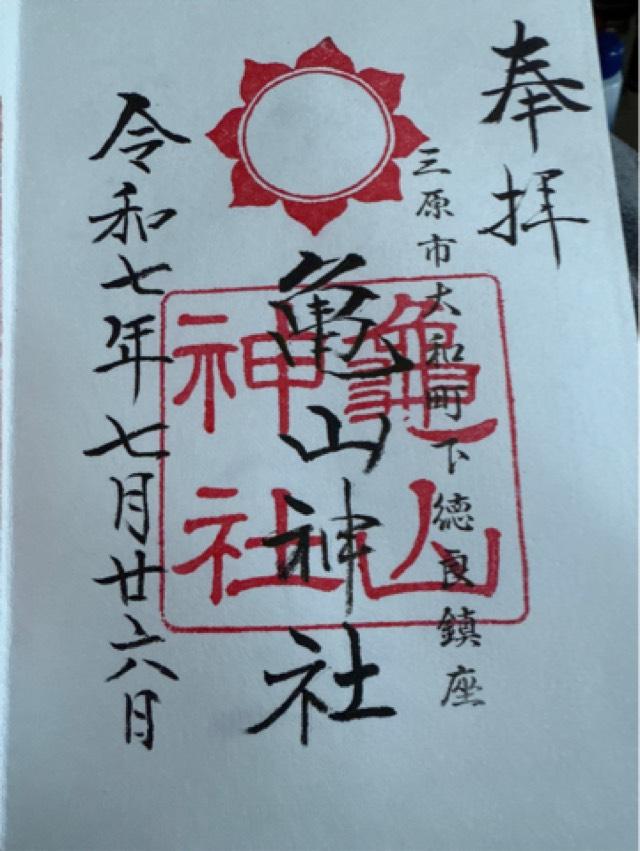 奉拝
三原市大和町下徳良鎮座
亀山神社
龜山
神社
令和七年七月廿六日